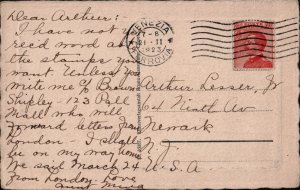 Dear Archer:
I have not y
recd word as
the stamps you
want. Unless you
write me C/o Brown
Shipley - 123 Pall
Mall who will
forward letters from
London - I shall
be on my way home
we sail March 3rd
from London. Love
Aunt Mina
VENEZIA
7-8
21·II
1923
FERROVIA
Archer Lesser, Jr
64 Ninth Av
Newark
N. J.
U.S.A